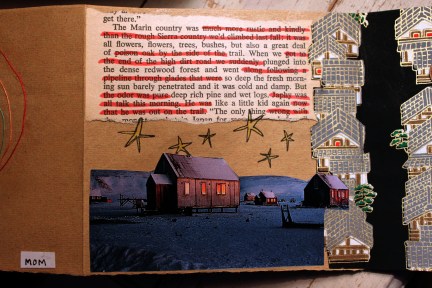 get there."
The Marin country was much more rustic and kindly
than the rough Sierra country we'd climbed last fall: it was
all flowers, flowers, trees, bushes, but also a great deal
of poison oak by the side of the trail. When we got to
the end of the high dirt road we suddenly plunged into
the dense redwood forest and went along following a
pipeline through glades that were so deep the fresh morn-
ing sun barely penetrated and it was cold and damp. But
the odor was pure deep rich pine and wet logs. Japhy was
all talk this morning. He was like a little kid again now
that he was out on the trail. "The only thing wrong with
MOM